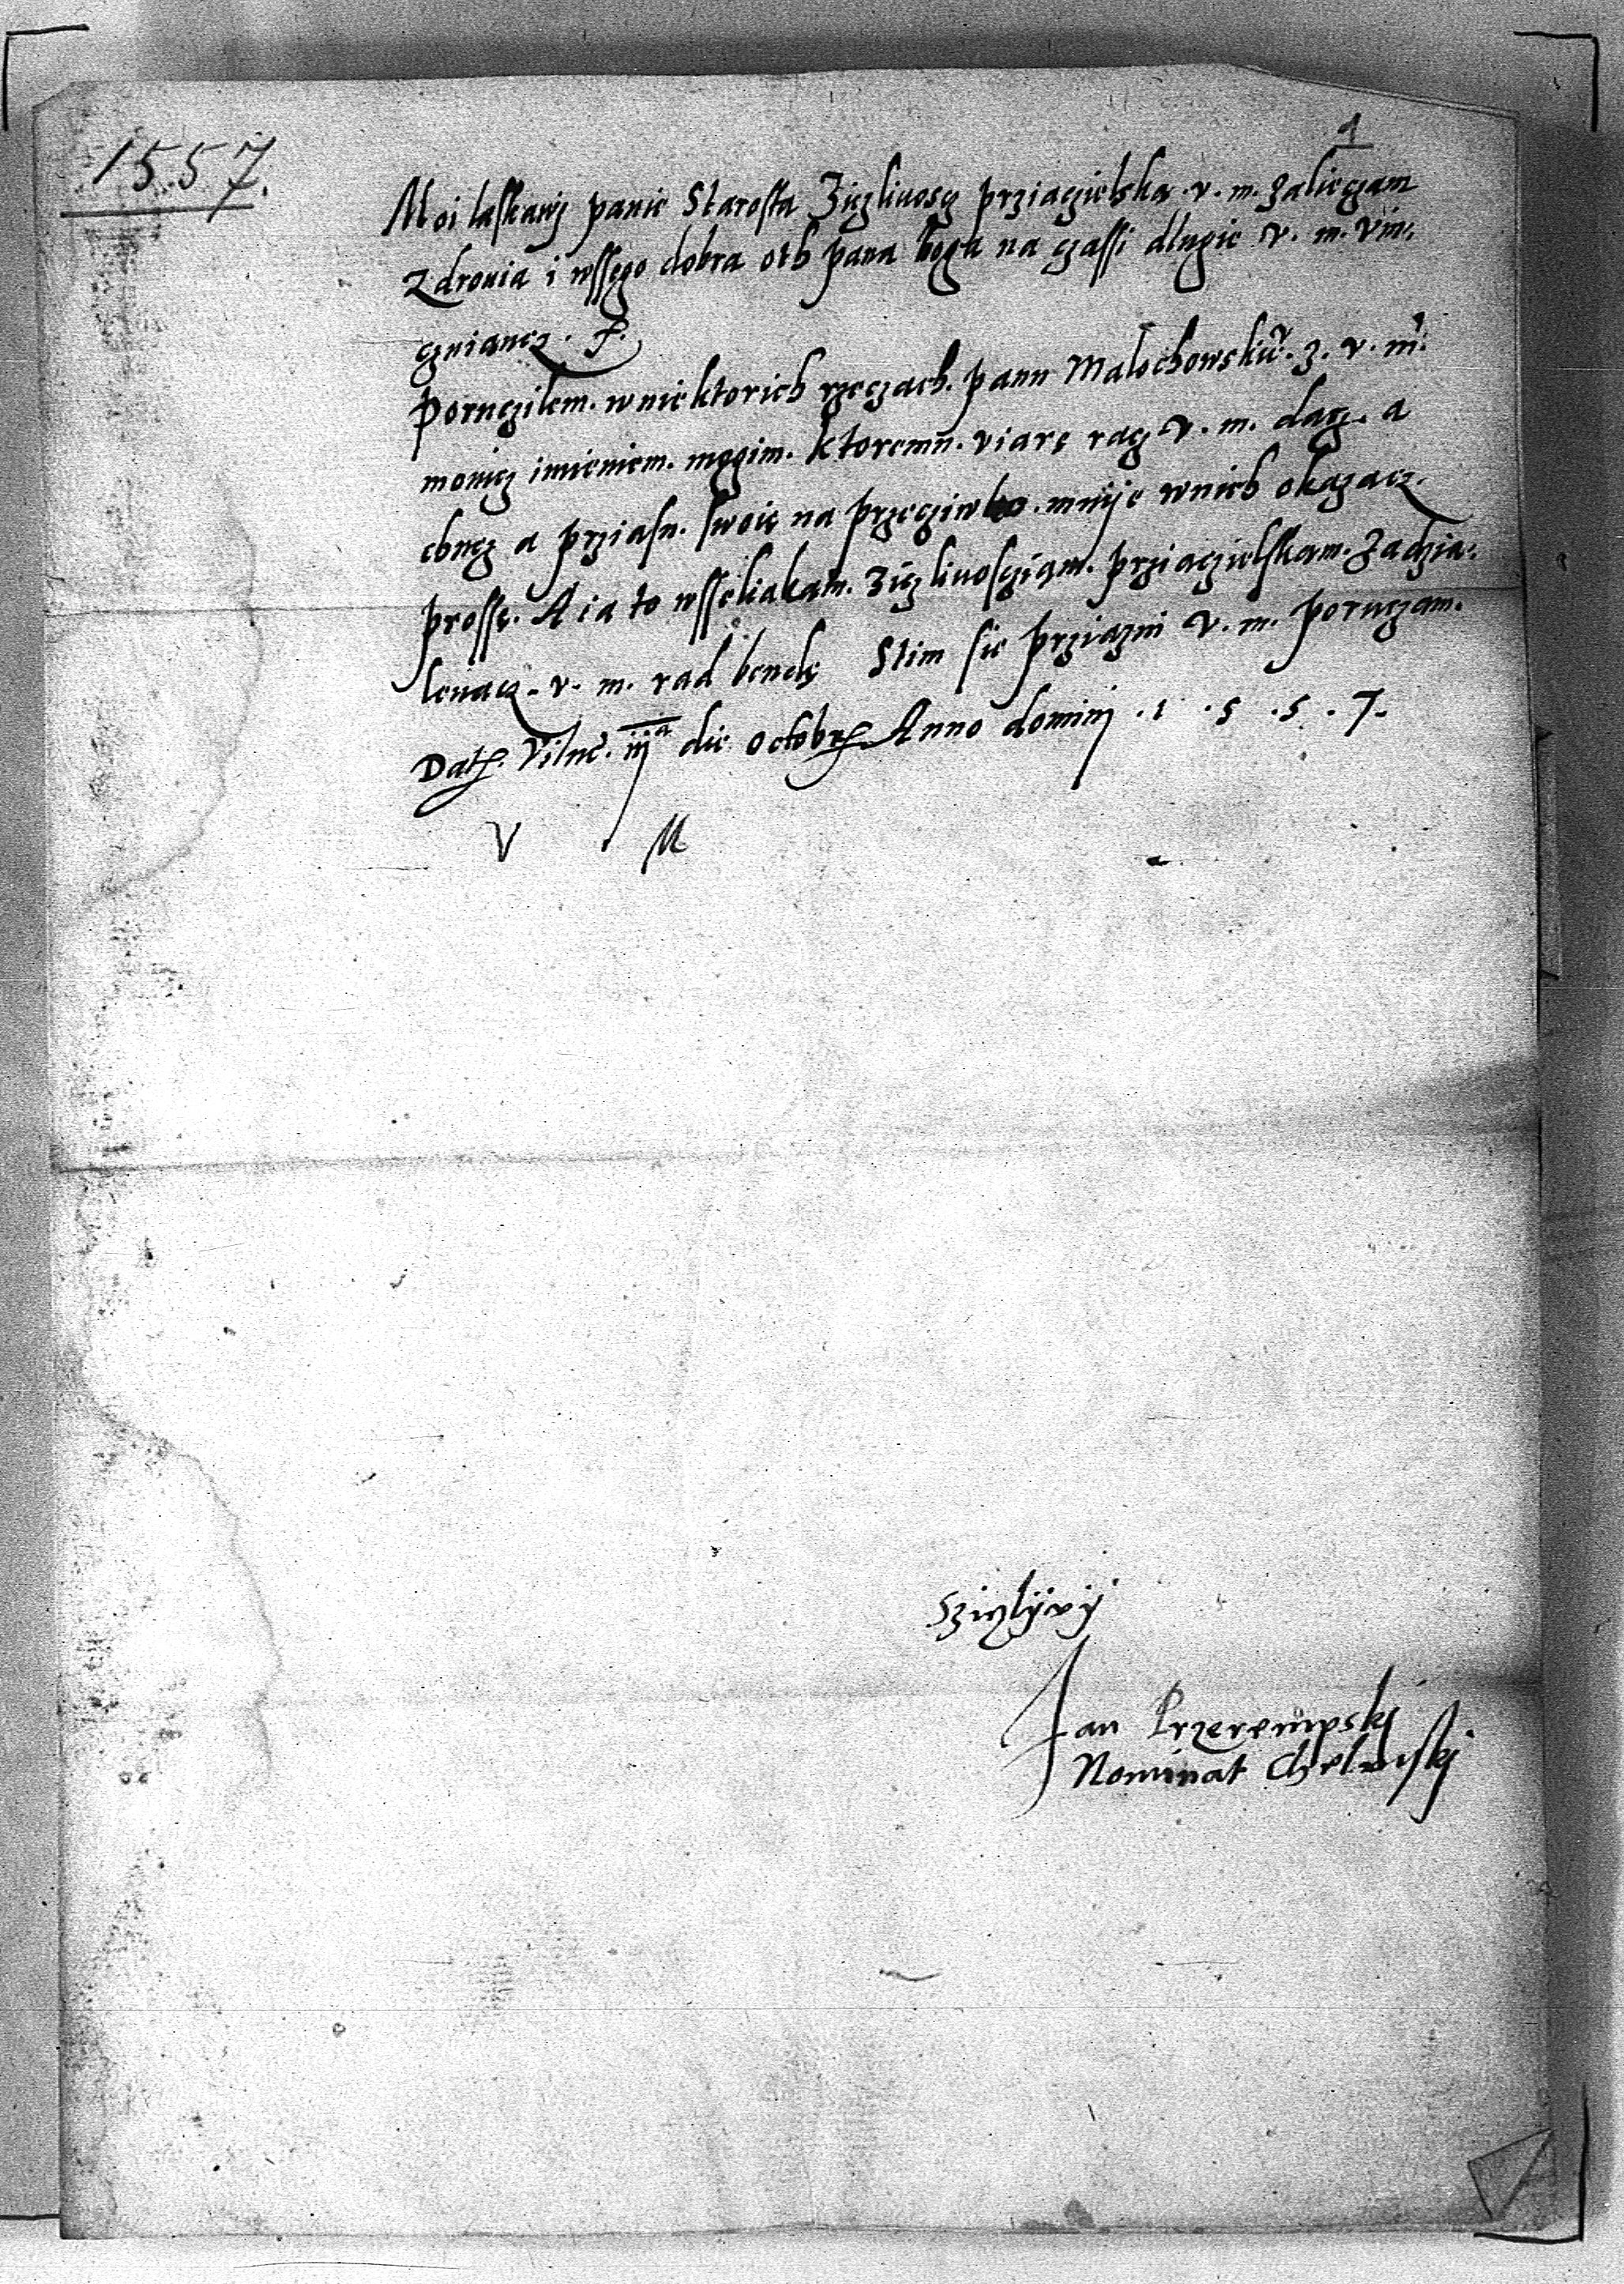 1557.
1
Moi laskawÿ panie Starosta Ziczliuoscz prziaczielska. v. m. zalieczam
Zdrouia i wssego dobra oth pana boga na czassi dlugie v. m. vin:
czuiancz.
Poruczilem. w niektorich rzeczach. panu Malochowskiē. z. v. m.
mouicz imieniem. moyim. ktoremu. viarę racz v. m. dacz. a
chucz a prziasn. swoię na przeciwko. mnÿe wnich okazacz.
prossę. A ia to wsseliakam. Ziczliuosciąm. prziaczielskam. zadzia:
lenacz. v. m. rad bendę Stim się prziazni v. m. poruczam.
Dat. Vilnē. iijᵃ die octobr. Anno dominj. 1. 5. 5. 7.
V M
Sziczlÿvÿ
Jan Przerempskj
Nominat Chelmskj